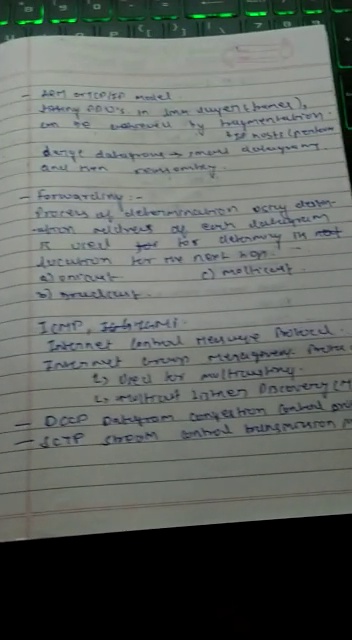 - OSI or TCP/IP model
taking PDU's in small layer (frames),
can be achieved by fragmentation.
hosts perform
large datagrams → small datagrams
and then reassembly.
- Forwarding :-
Process of determination every destin-
ation address of each datagram
is used for determing in
location for the next hop.
a) unicast c) multicast.
b) broadcast.
ICMP, IGMP.
Internet Control Message Protocol.
Internet Group Management Proto
↳ Used for multicasting.
↳ multicast listner Discovery (M
- DCCP Datagram Congestion Control pro
- SCTP Stream Control transmission